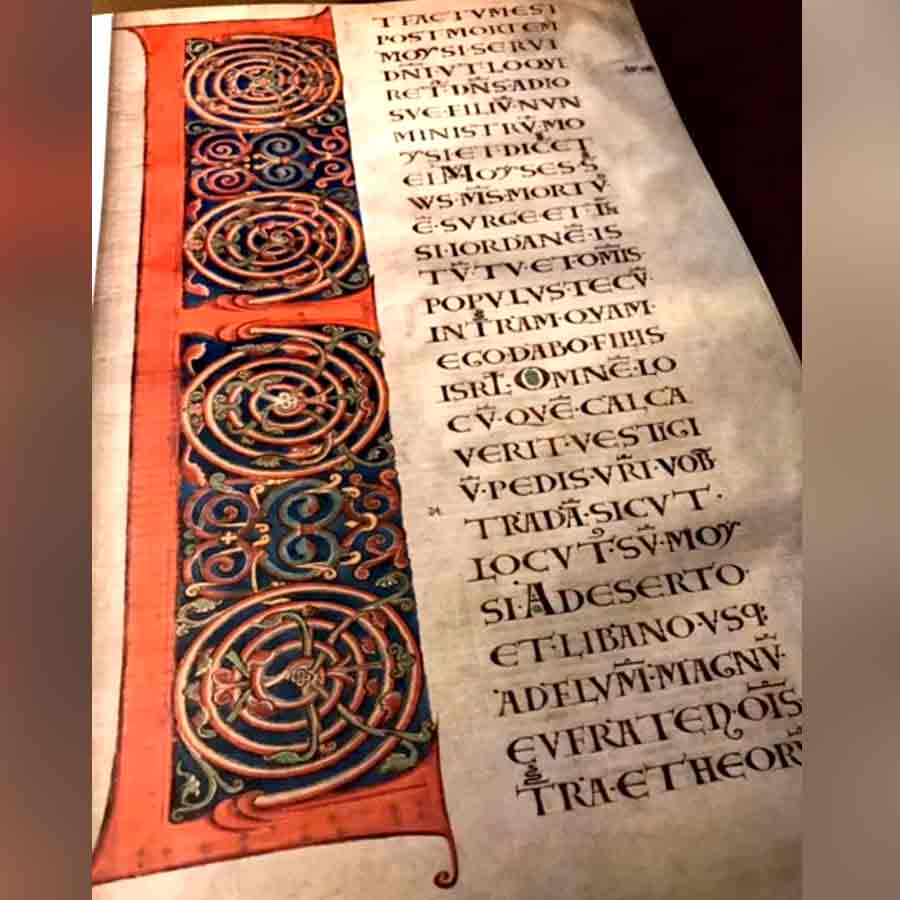 ET FACTVM EST
POST MORTEM
MOYSI SERVI
DN̄I·VT·LOQVE
RET·DN̄S·ADIO
SVE·FILIV̄·NVN
MINISTRV̄·MO
YSI·ET·DICET
EI·MOYSES·S̄
WS·M̄S·MORTV
Ē·SVRGE·ET·
SI·IORDANĒ·IS
TV̄·TV·ET·OM̄IS
POPVLVS·TECV̄
IN TRAM·QVAM·
EGO·DABO·FILIIS
ISRL̄·OMNĒ·LO
CV̄·QVĒ·CALCA
VERIT·VESTIGI
V̄·PEDIS·VR̄I·VOB̄
TRADĀ·SICVT·
LOCVT·SV̄·MOY
SI·A DESERTO·
ET·LIBANO·VSQ;
AD FLVM̄·MAGNV̄·
EVFRATEN·OĪS
TRA·ETHEOR